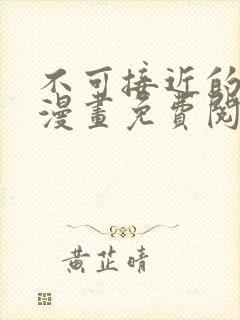 不可接近的
漫畫免費閱
黃芷晴